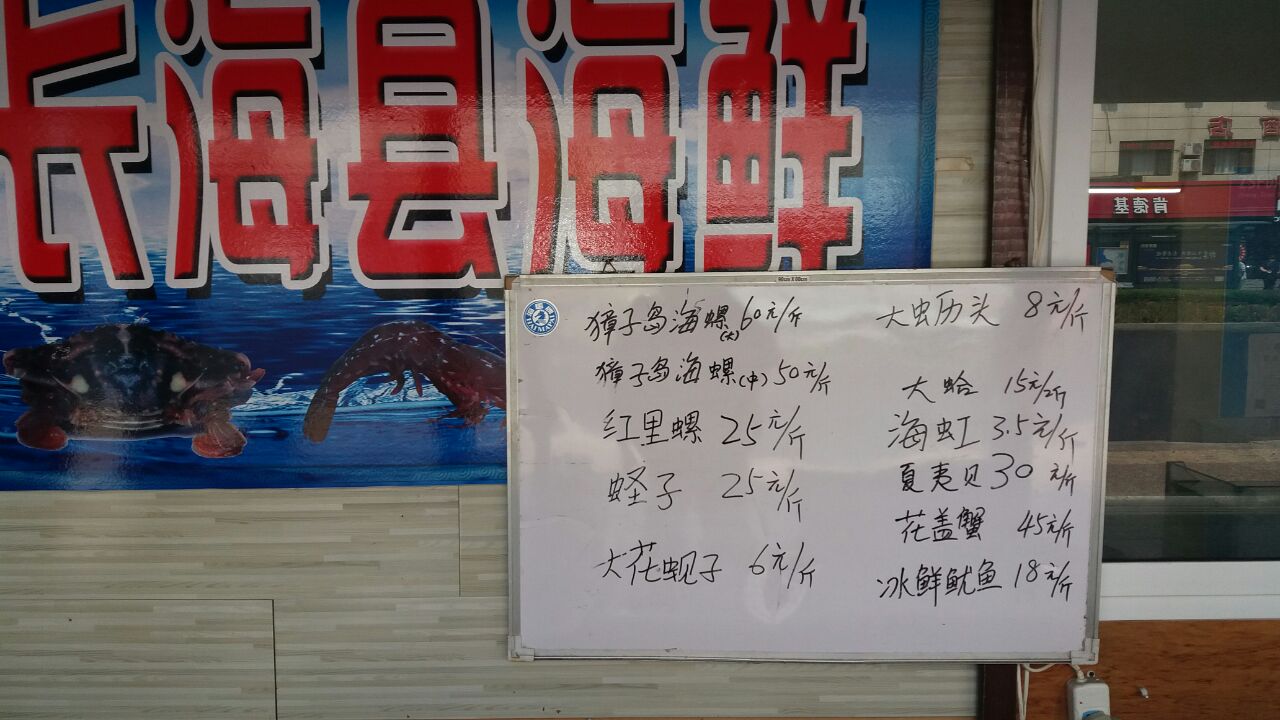 长海县海鲜
獐子岛海螺(大)60元/斤
獐子岛海螺(中)50元/斤
红里螺 25元/斤
蛏子 25元/斤
大花蚬子 6元/斤
大虫历头 8元/斤
大蛤 15元/斤
海虹 3.5元/斤
夏夷贝 30元/斤
花盖蟹 45元/斤
冰鲜鱿鱼 18元/斤
肯德基
酒店